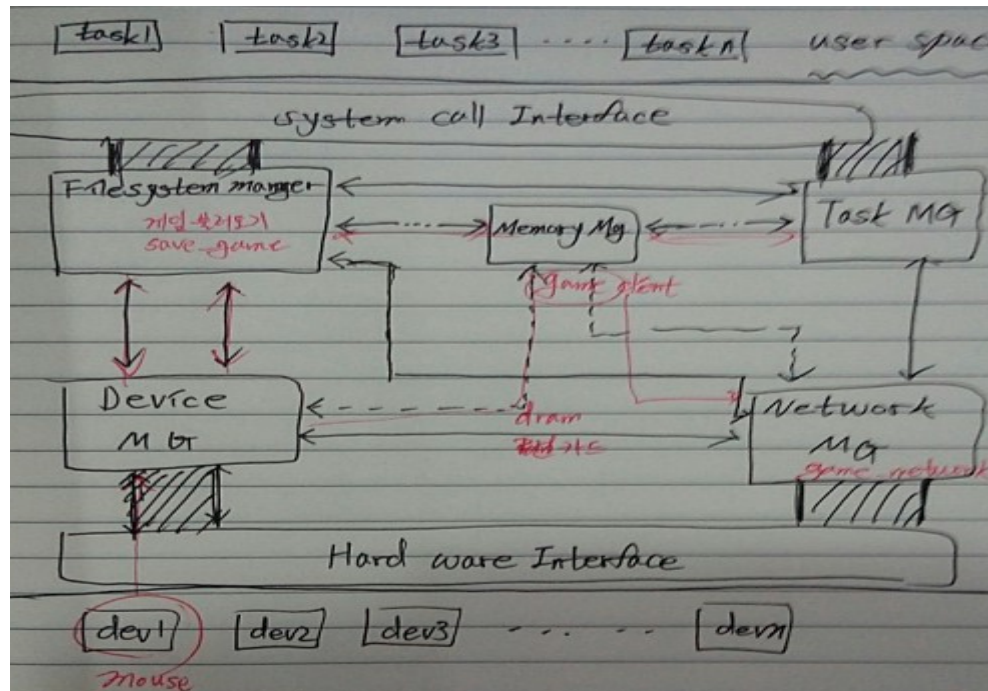 task1 task2 task3 .... task n user spac
system call Interface
Filesystem manger
게임 불러오기
save_game
Memory Mg
Task MG
game client
Device
MG
dram
Network
MG
game network
Hard ware Interface
dev1 dev2 dev3 - .. .. devn
mouse